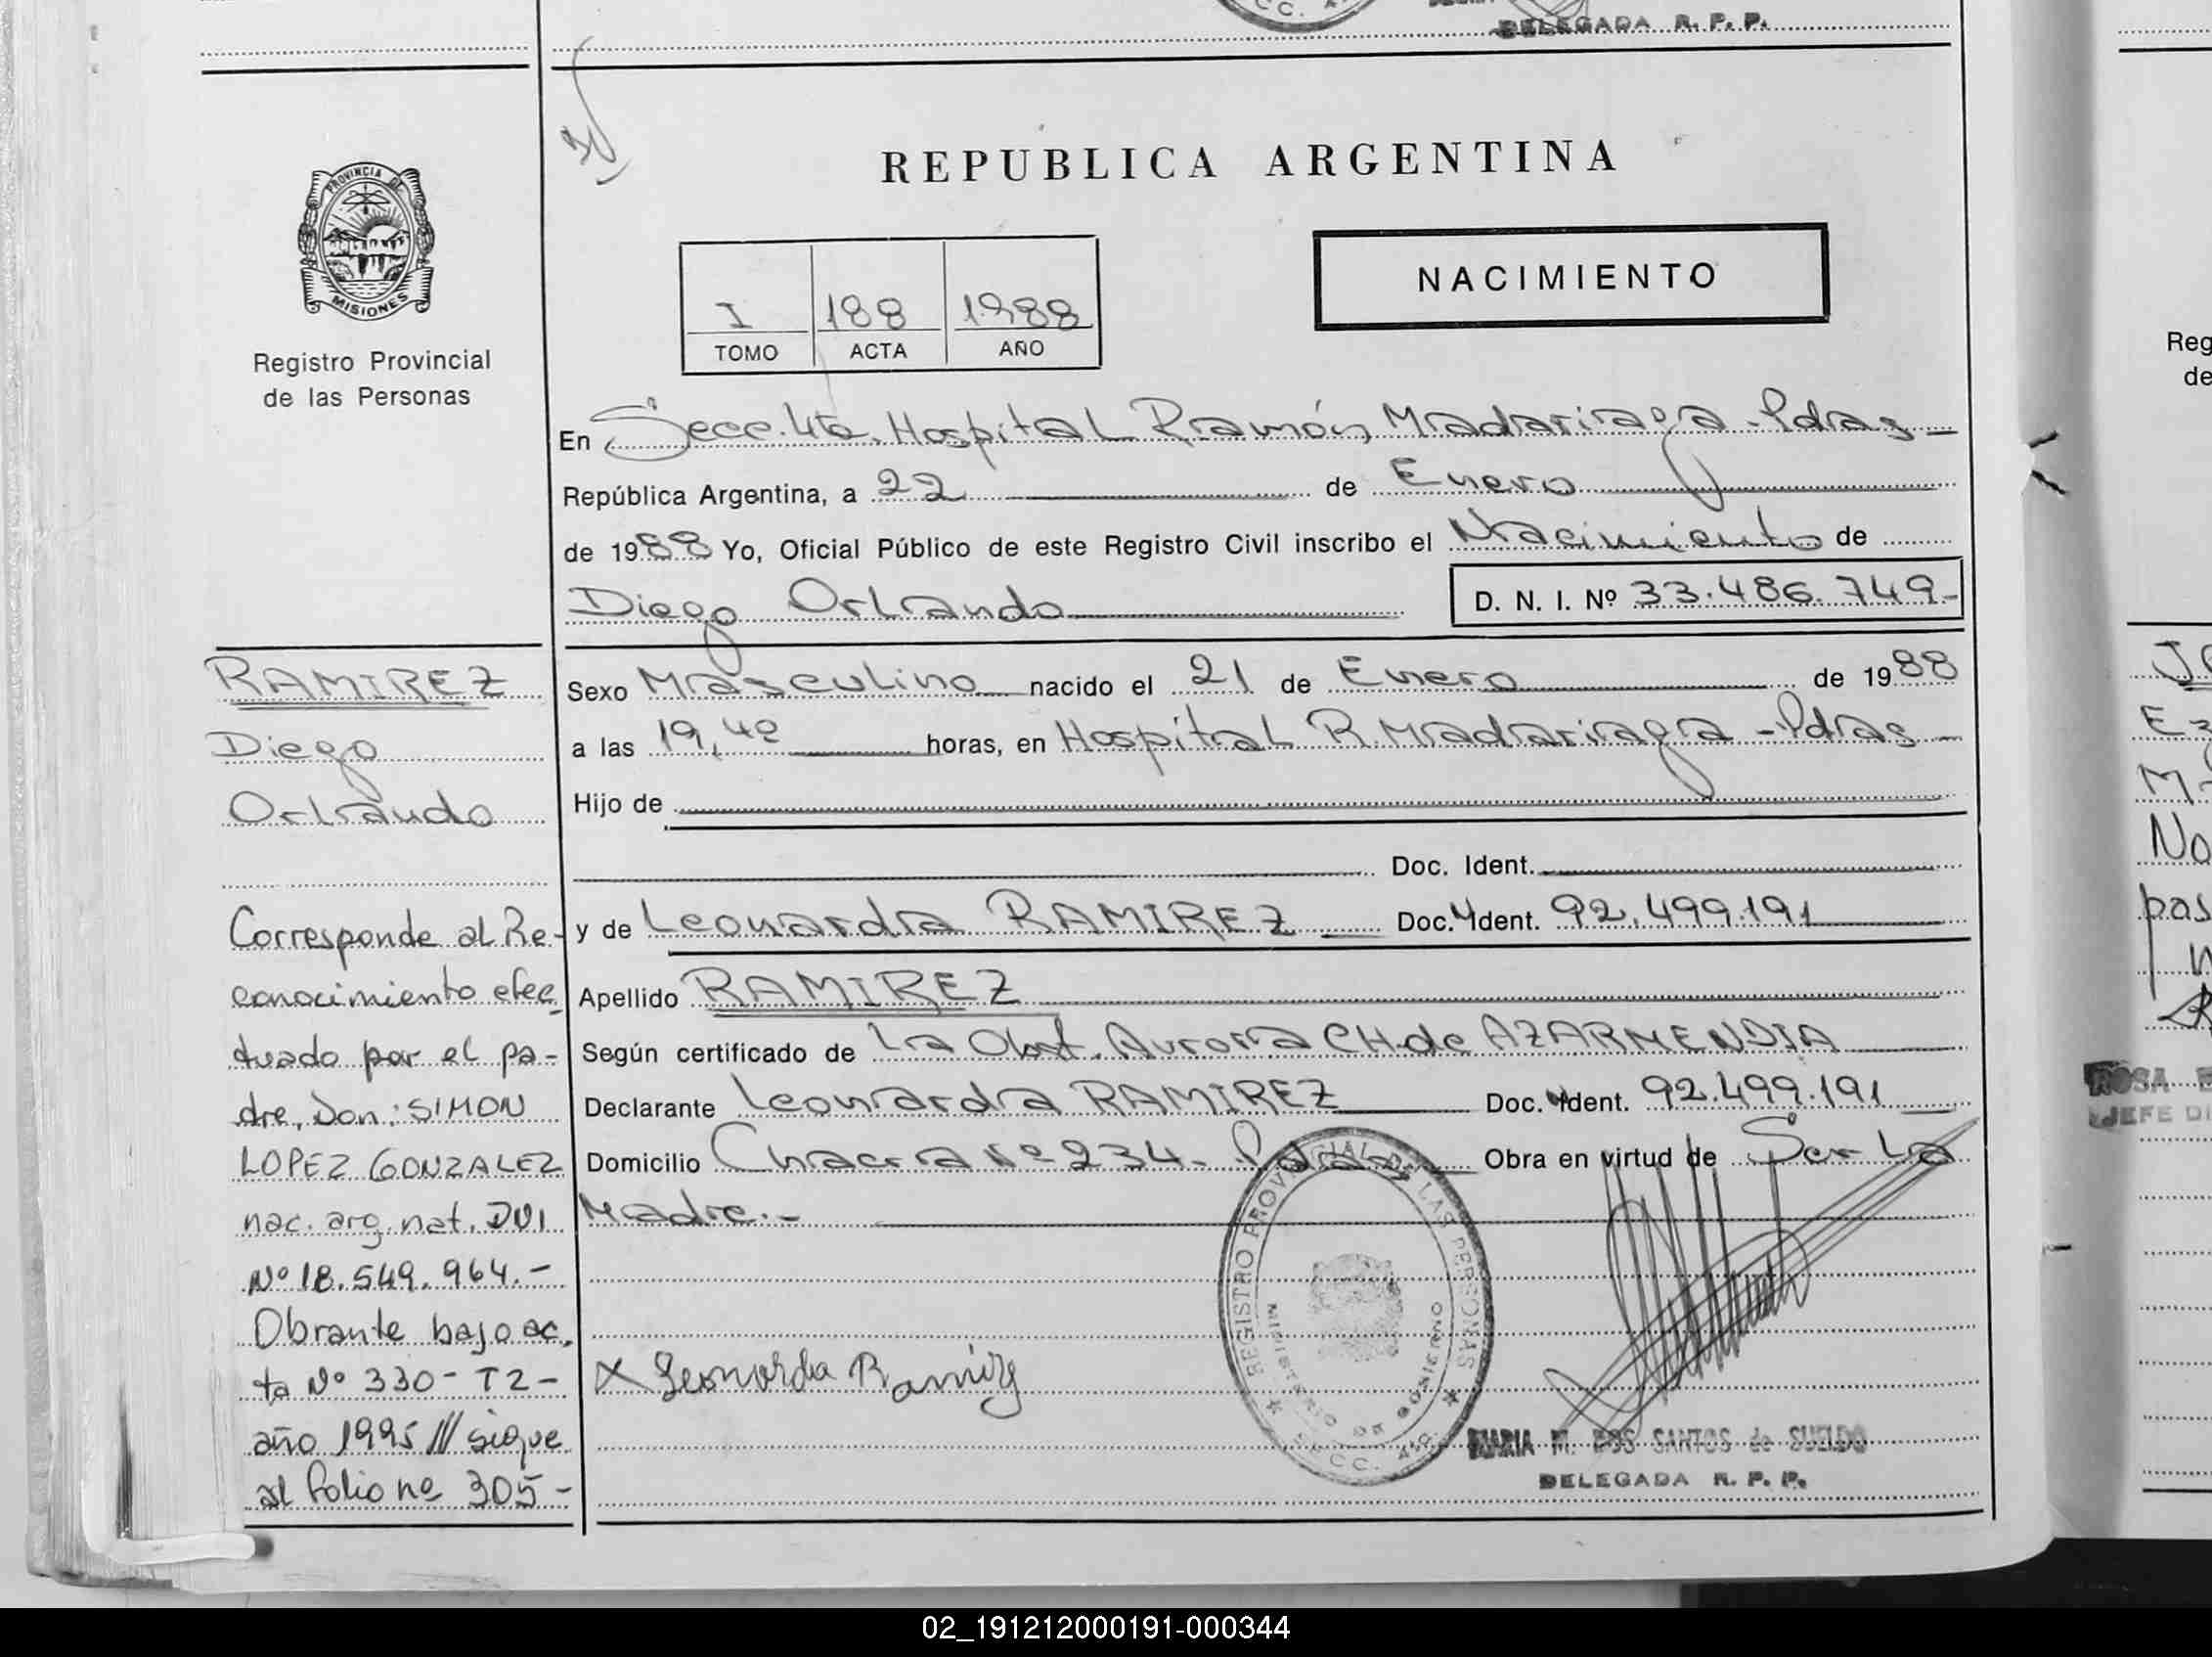 DELEGADA R. P. P.
REPUBLICA ARGENTINA
PROVINCIA DE
MISIONES
Registro Provincial
de las Personas
NACIMIENTO
I 188 1988
TOMO ACTA AÑO
En Secc. 4ta. Hospital Ramón Madariaga - Pdas -
República Argentina, a 22 de Enero
de 1988 Yo, Oficial Público de este Registro Civil inscribo el Nacimiento de
Diego Orlando D. N. I. Nº 33.486.749-
Sexo Masculino nacido el 21 de Enero de 1988
a las 19,40 horas, en Hospital R. Madariaga - Pdas -
Hijo de
Doc. Ident.
y de Leonarda RAMIREZ Doc. Ident. 92.499.191
Apellido RAMIREZ
Según certificado de La Obst. Aurora CH. de AZARMENDIA
Declarante Leonarda RAMIREZ Doc. Ident. 92.499.191
Domicilio Chacra Nº 234 - Pdas Obra en virtud de Ser La
Madre.-
X Leonarda Ramirez
REGISTRO PROVINCIAL DE LAS PERSONAS
MINISTERIO DE GOBIERNO
SECC. 4ta
MARIA M. DOS SANTOS de SUELDO
DELEGADA R. P. P.
RAMIREZ
Diego
Orlando
Corresponde al Re-
conocimiento efec
tuado por el pa-
dre, Don: SIMON
LOPEZ GONZALEZ
nac. arg. nat. DNI
Nº 18.549.964.-
Obrante bajo ac.
ta Nº 330- T2-
año 1995 /// sigue
al folio nº 305-
Reg
de
No
pas
ROSA
JEFE DI
02_191212000191-000344